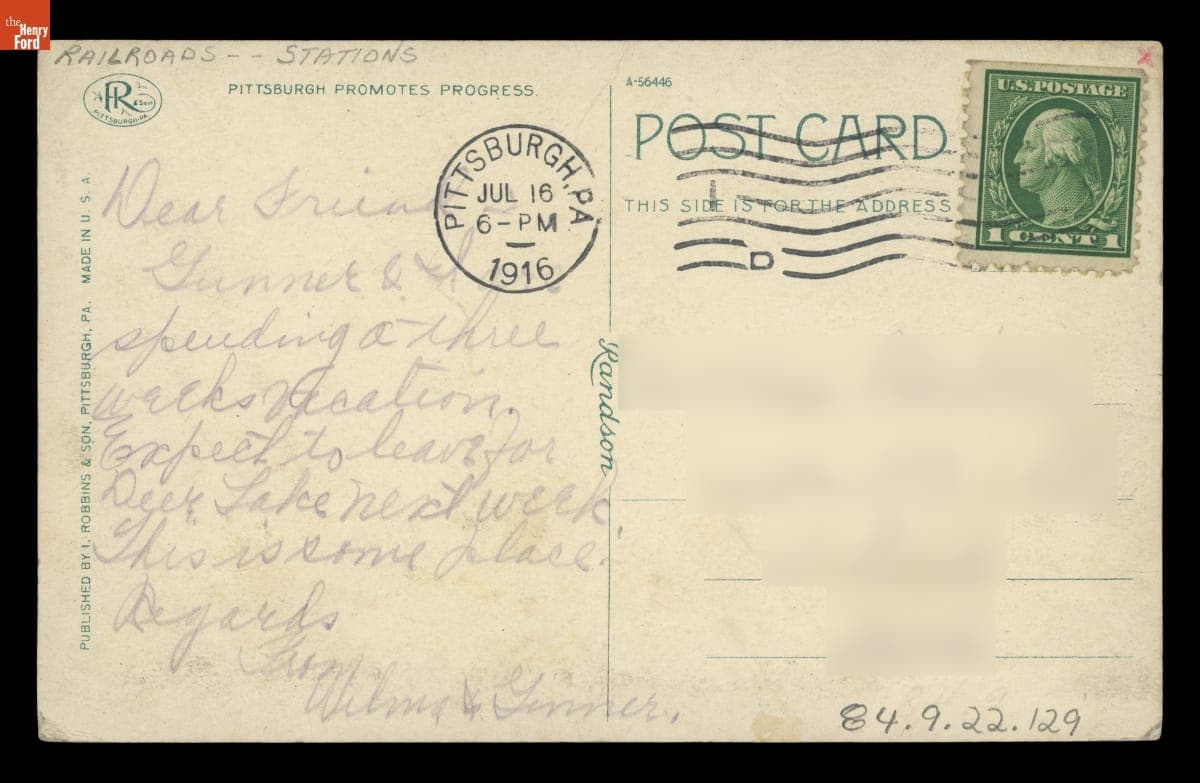 the
Henry
Ford
RAILROADS -- STATIONS
R & Son
PITTSBURGH, PA.
PITTSBURGH PROMOTES PROGRESS.
A-56446
POST CARD
THIS SIDE IS FOR THE ADDRESS
U.S. POSTAGE
1 CENT 1
PITTSBURGH, PA
JUL 16
6-PM
1916
D
Dear Friend
Gunner & I
spending a three
weeks vacation.
Expect to leave for
Deer Lake next week.
This is some place.
Regards
From
Wilma & Gunner.
PUBLISHED BY I. ROBBINS & SON, PITTSBURGH, PA. MADE IN U.S.A.
Randson
84.9.22.129